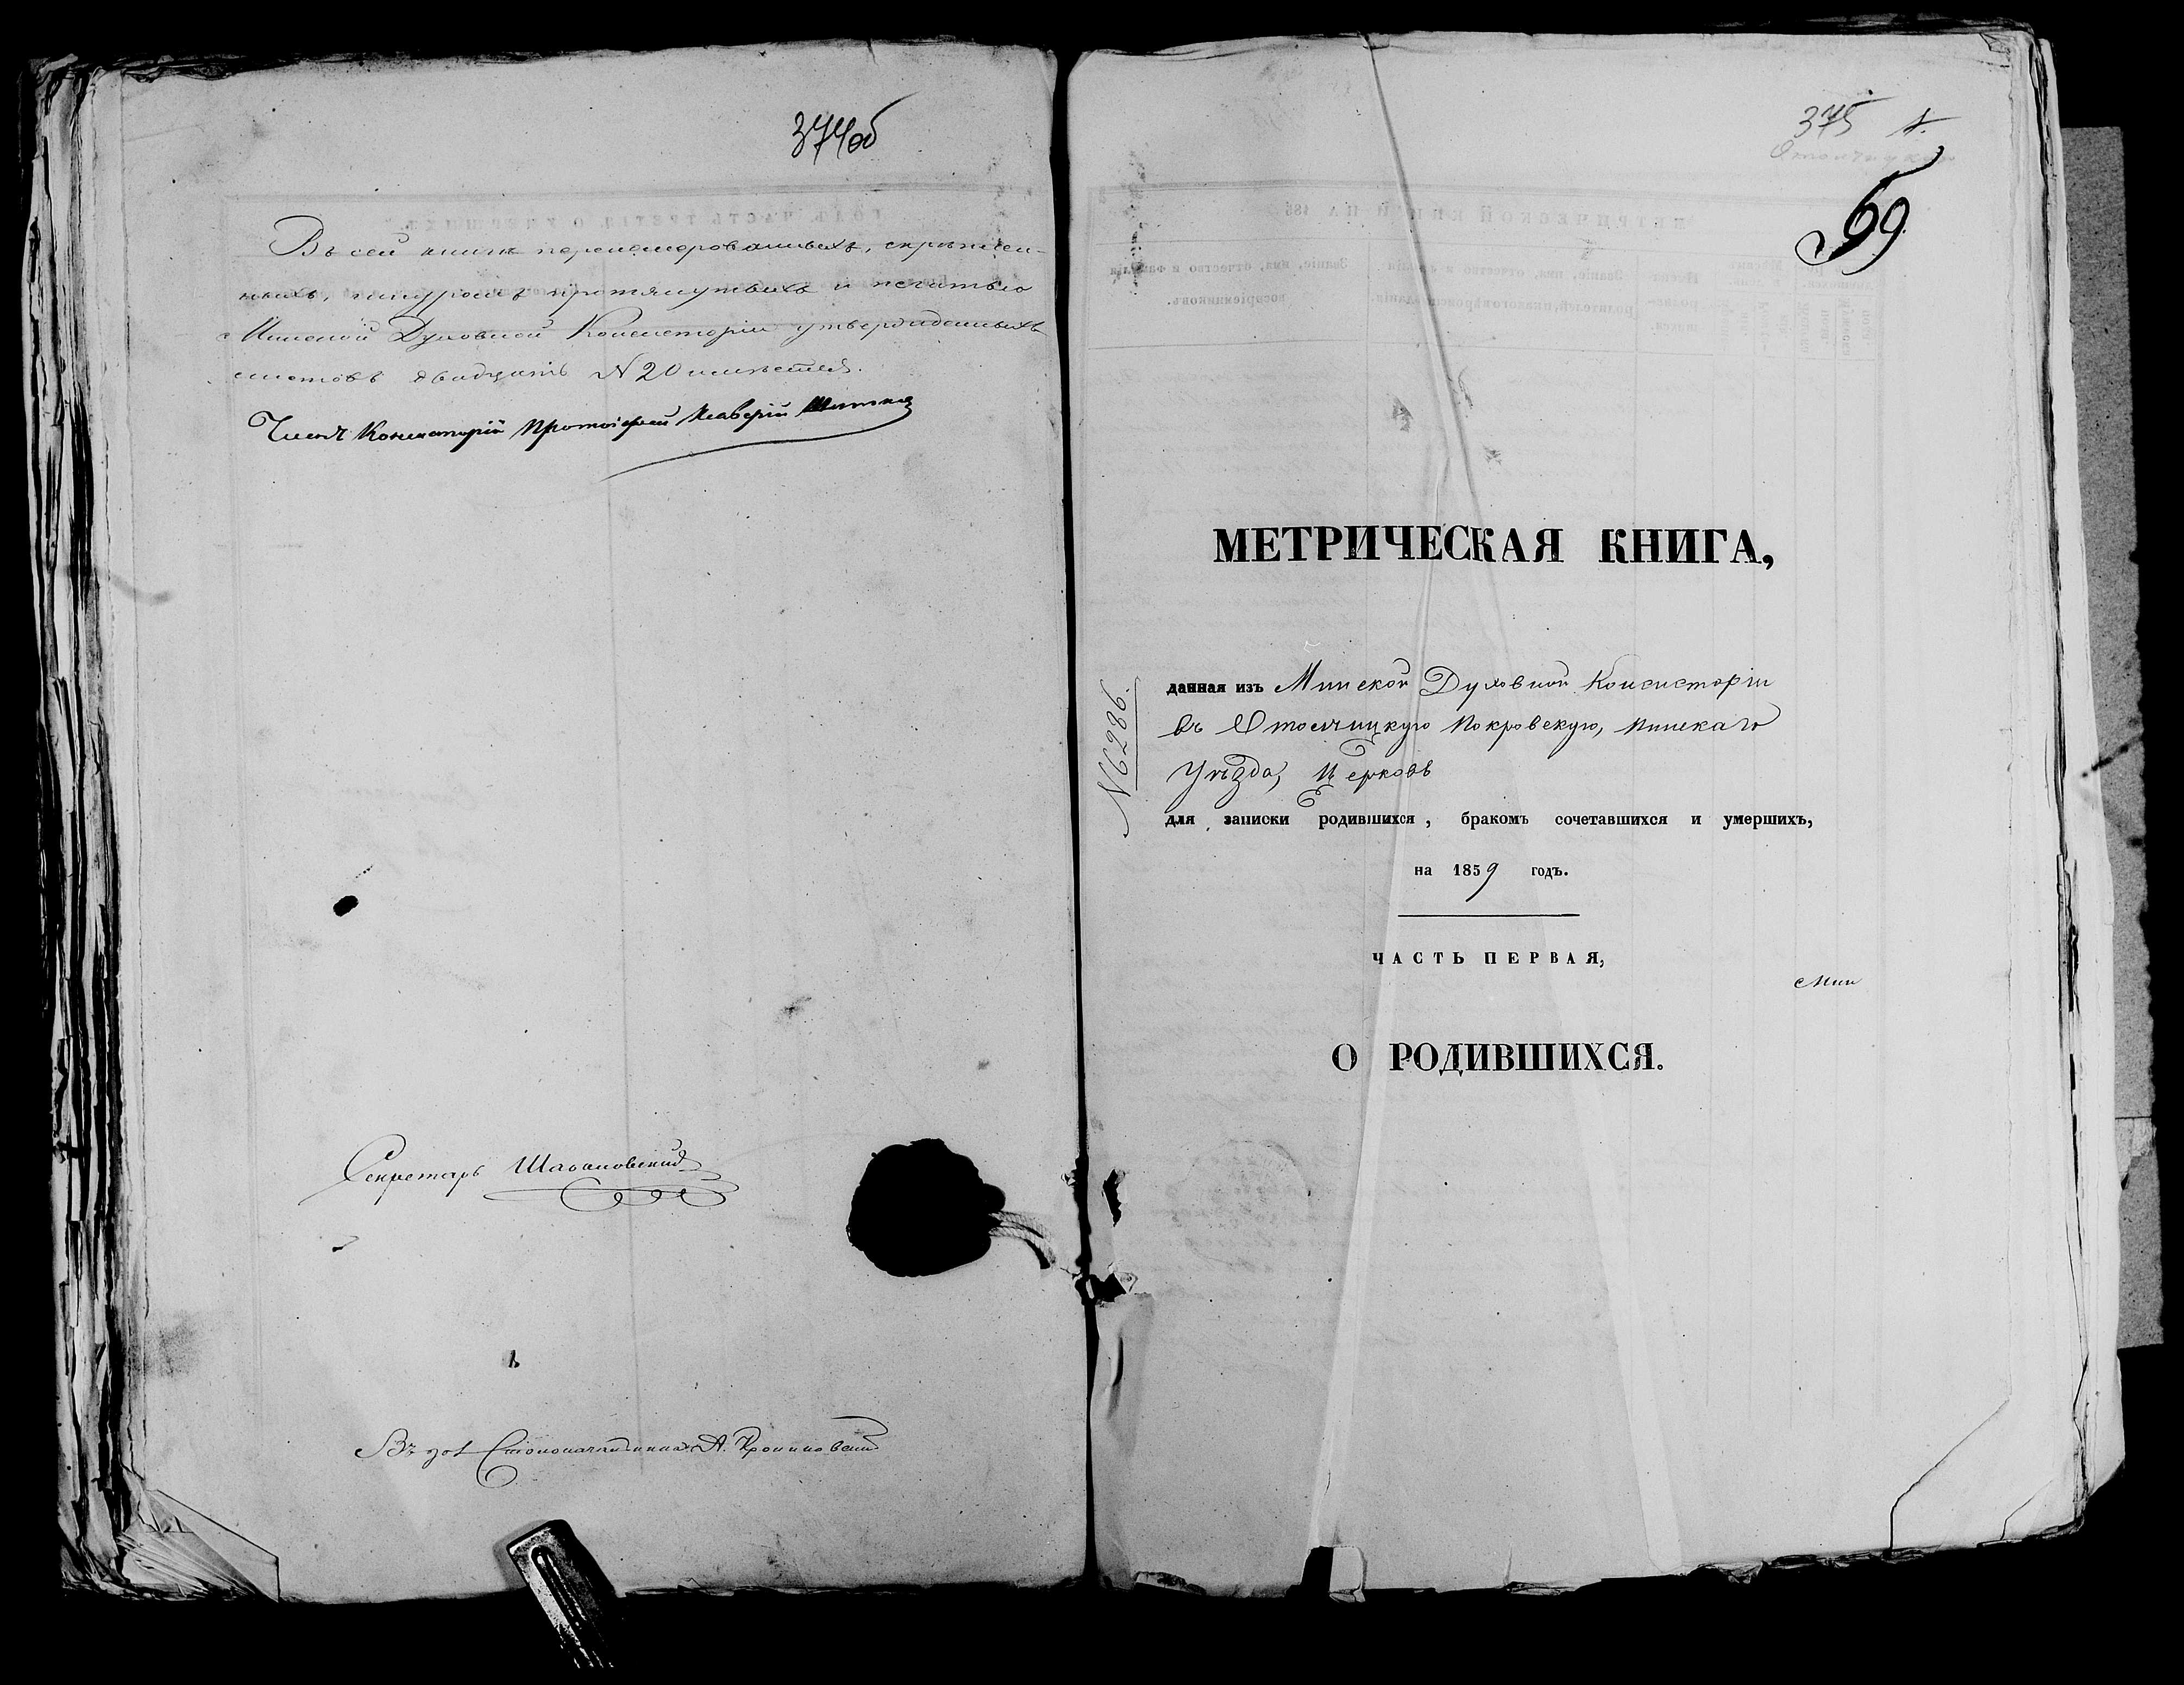 374об
Въ сей книгѣ перенумерованныхъ, скрѣплен-
ныхъ, шнуромъ протянутыхъ и печатью
Минской Духовной Консисторіи утвержденныхъ
листовъ двадцать N 20 имѣется.
Членъ Консисторіи Протоіерей
Секретарь
Въ дол. Столоначальника А.
375 1.
69
МЕТРИЧЕСКАЯ КНИГА,
данная изъ Минской Духовной Консисторіи
въ Отолчицкую Покровскую, Пинскаго
Уѣзда, Церковь
N 6286.
для записки родившихся, бракомъ сочетавшихся и умершихъ,
на 1859 годъ.
ЧАСТЬ ПЕРВАЯ,
Мин
О РОДИВШИХСЯ.